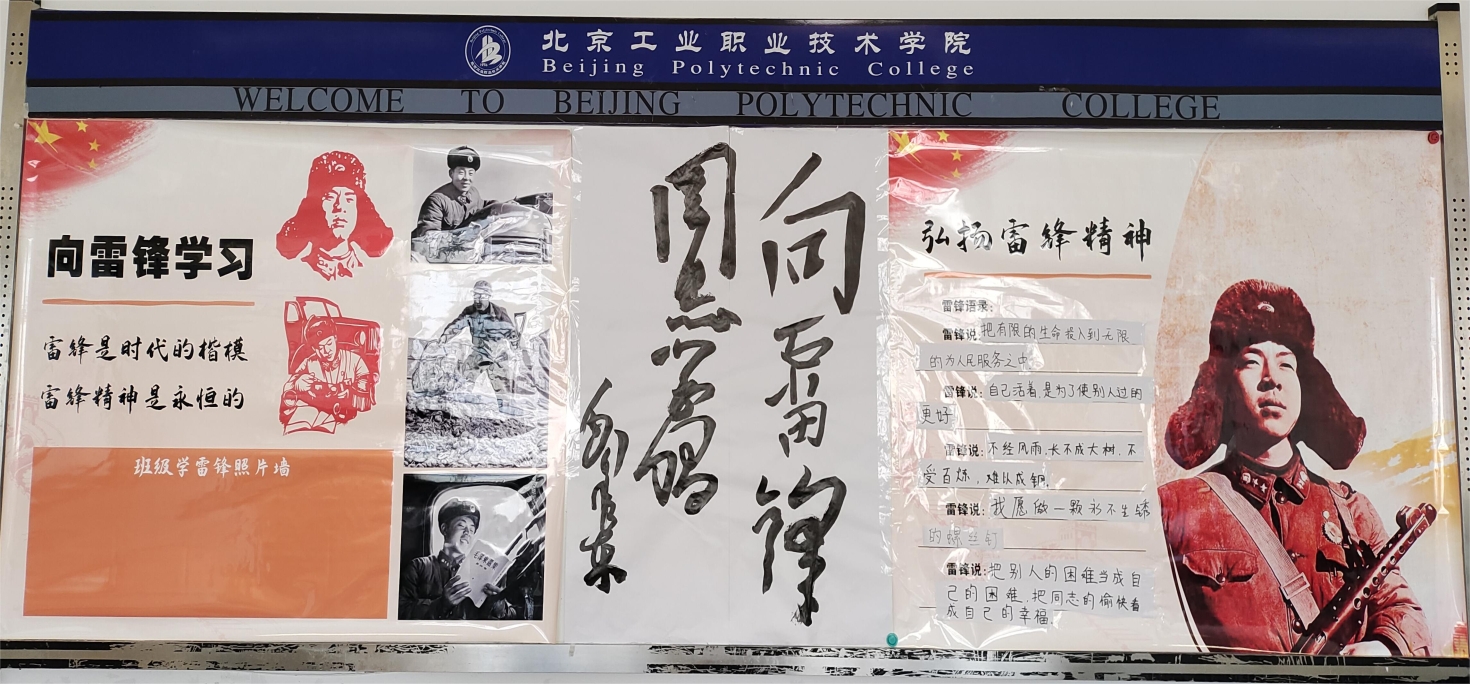 北京工业职业技术学院
Beijing Polytechnic College
WELCOME TO BEIJING POLYTECHNIC COLLEGE
向雷锋学习
雷锋是时代的楷模
雷锋精神是永恒的
班级学雷锋照片墙
向雷锋
同志学习
毛泽东
弘扬雷锋精神
雷锋语录:
雷锋说:把有限的生命投入到无限
的为人民服务之中。
雷锋说:自己活着,是为了使别人过的
更好
雷锋说:不经风雨,长不成大树,不
受百炼,难以成钢。
雷锋说:我愿做一颗永不生锈
的螺丝钉
雷锋说:把别人的困难当成自
己的困难,把同志的愉快看
成自己的幸福。